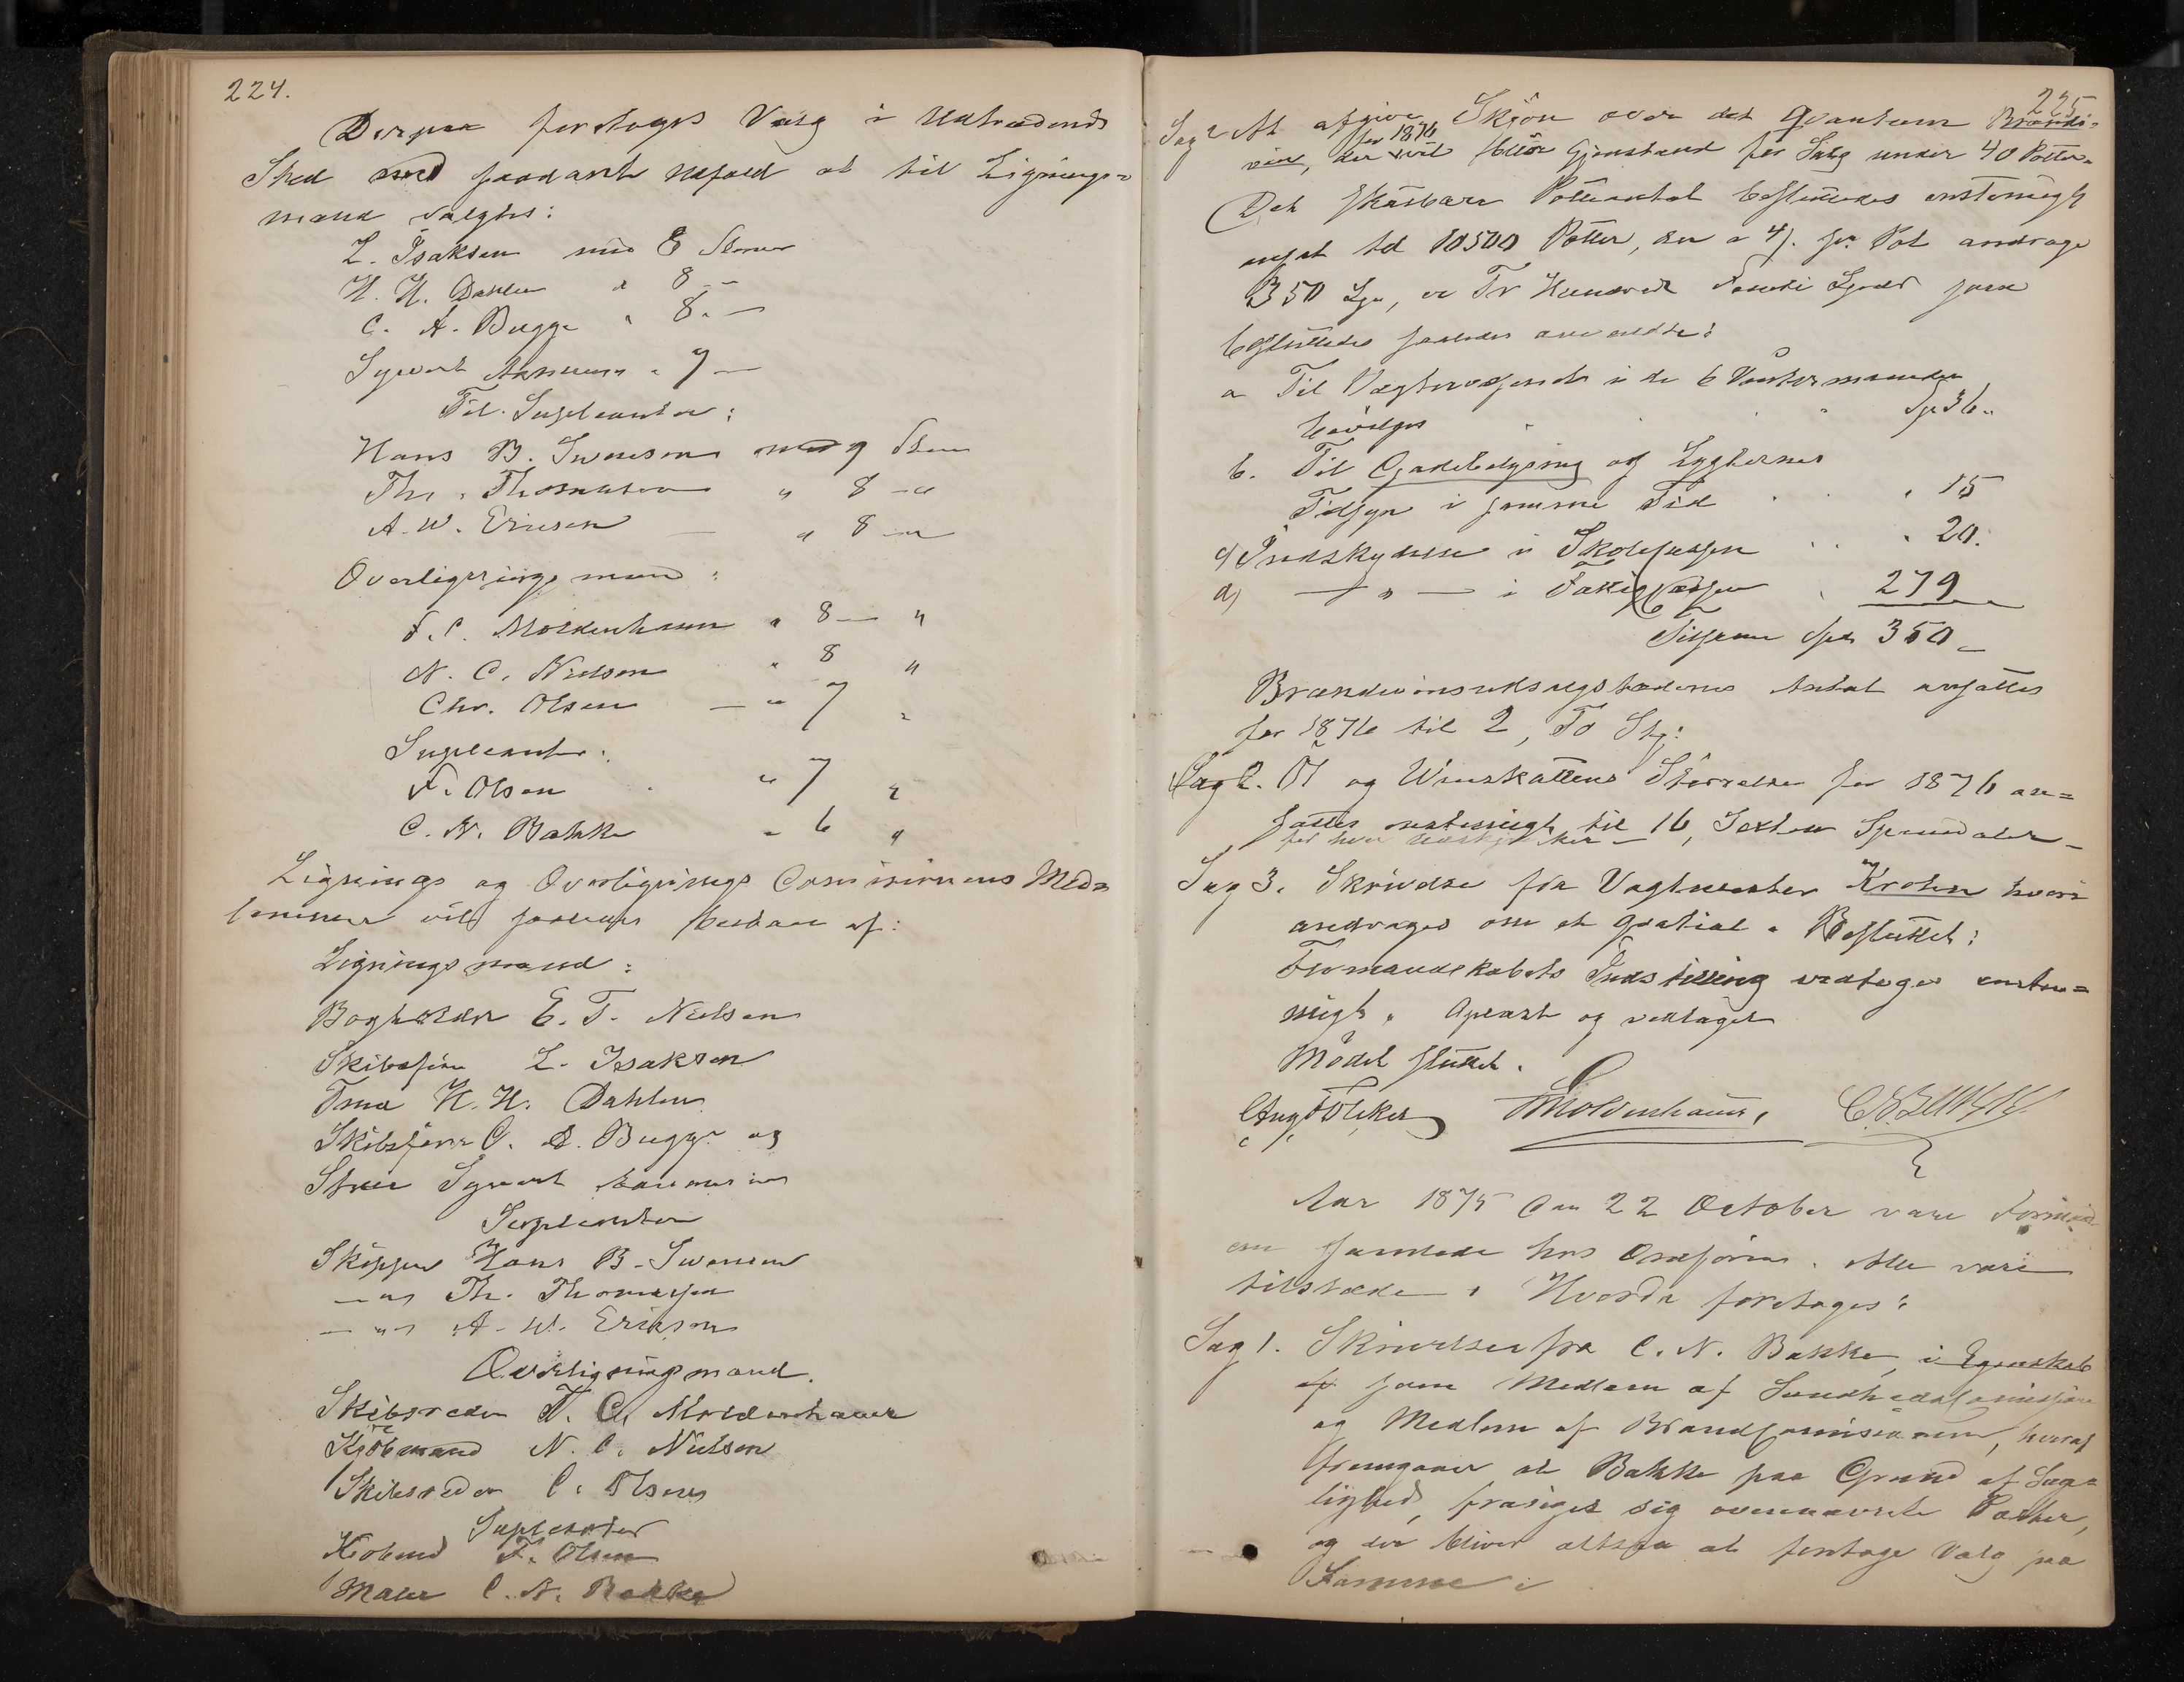 224.
Derpaa foretoges Valg i Udtrædende
Sted med saadant Udfald at til Lignings=
mænd valgtes:
L. Isaksen med 8 Stemer
H. H. Dahlen " 8 —
C. A. Bugge " 8. —
Sywert Aanensen " 7 —
Til Supleanter:
Hans B. Swensen med 9 Stem
Th. Thomassen " 8 — "
A. W. Ericsen — " 8 — "
Overligningsmænd:
F. C. Moldenhauer " 8 — "
N. C. Nielsen " 8 "
Chr. Olsen — " 7 "
Supleanter:
F. Olsen " 7 "
C. N. Bakke " 6 "
Lignings og Overlignings Comissionens Med=
lemmer vil saaledes bestaae af:
Ligningsmænd:
Bogholder E. T. Nielsen
Skibsfører L. Isaksen
H. H. Dahlen
Skibsfører C. A. Bugge og
Sywert Aanensen
Supleanter
Skipper Hans B. Swensen
— " — Th. Thomassen
— " — A. W. Ericsen
Overligningsmænd.
Skibsreder F. C. Moldenhauer
Kjøbmand N. C. Nielsen
Skibsreder C. Olsen
Supleanter
Kiøbmd F. Olsen
Maler C. N. Bakke
225
Sag 1 At afgive Skjøn over det Qvantum Brændi=
for 1876
viin, der vil blive Gjenstand for Salg under 40 Potter.
Det skatbare Potteantal besluttedes enstemigt
ansat til 10500 Potter, der a 4 s. pr. Pot andrage
350 Spd, er Tre Hundrede Femti Spesd som
besluttedes saaledes anvendte:
a Til Vægtervæsenet i de 6 Vintermaaneder
bevilges " " Sp 36 "
b. Til Gadebelysning og Lygternes
Tilsyn i samme Tid " 15
c) Indskydelse i Skolekassen " 20.
d) — " — i Fattigkassen " 279
Tilsamen Spd 350 —
Brændevinsudsalgstedernes Antal ansattes
for 1876 til 2, To Stk:
Sag 2. Øl og Vinskattens Størrelse for 1876 an=
sattes enstemigt til 16, Sexten Speciedaler —
for hver Udskjænker —
Sag 3. Skrivelse fra Vagtmester Krohn hvori
andrages om et Gratiale. Besluttet:
Formandskabets Indstilling vedtages enstem=
migt. Oplæst og vedtaget
Mødet sluttet.
Moldenhauer,
Aar 1875 den 22 October vare Formænd
ene samlede hos Ordføreren. Alle vare
tilstæde. Hvorda foretoges:
Sag 1. Skrivelse fra C. N. Bakke, i Egenskab
af som Medlem af Sundhedscomissionen
og Medlem af Brandcomissionen, hvoraf
fremgaaer at Bakke paa Grund af Syge=
lighed, frasiger sig ovennævnte Poster,
og der bliver altsaa at foretage Valg paa
Samme i